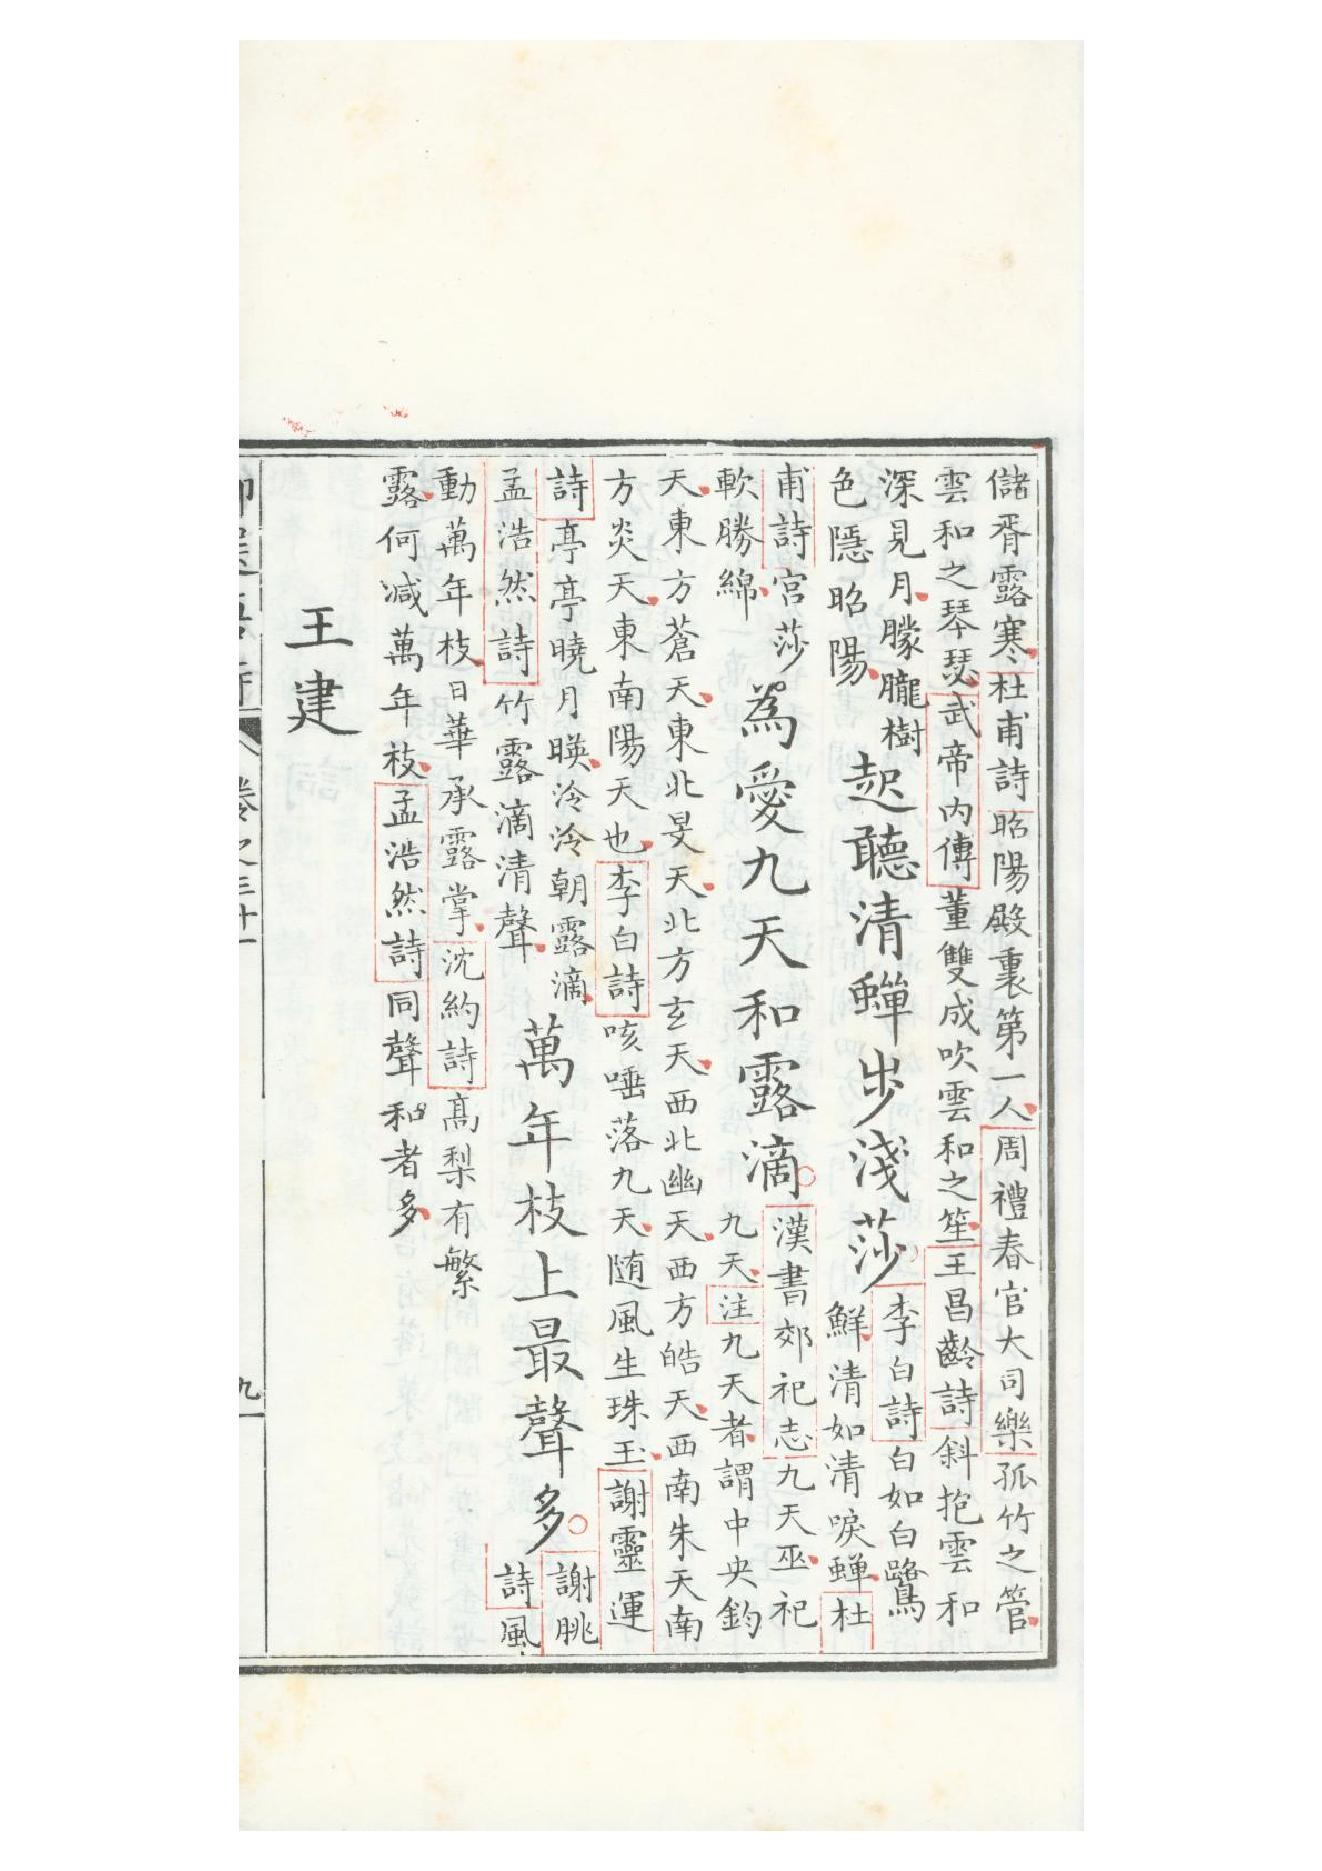 儲胥露寒杜甫詩昭陽殿裏第一人周禮春官大司樂孤竹之管
雲和之琴瑟武帝內傳董雙成吹雲和之笙王昌齡詩斜抱雲和
深見月朦朧樹
色隱昭陽
起聽清蟬步淺莎
李白詩白如白鷺
鮮清如清唳蟬杜
甫詩宮莎
軟勝綿
為愛九天和露滴
漢書郊祀志九天巫祀
九天注九天者謂中央鈞
天東方蒼天東北旻天北方玄天西北幽天西方皓天西南朱天南
方炎天東南陽天也李白詩咳唾落九天随風生珠玉謝靈運
詩亭亭曉月暎泠泠朝露滴
孟浩然詩竹露滴清聲
萬年枝上最聲多
謝朓
詩風
動萬年枝日華承露掌沈約詩高梨有繁
露何減萬年枝孟浩然詩同聲和者多
王建
卷之三十一
九